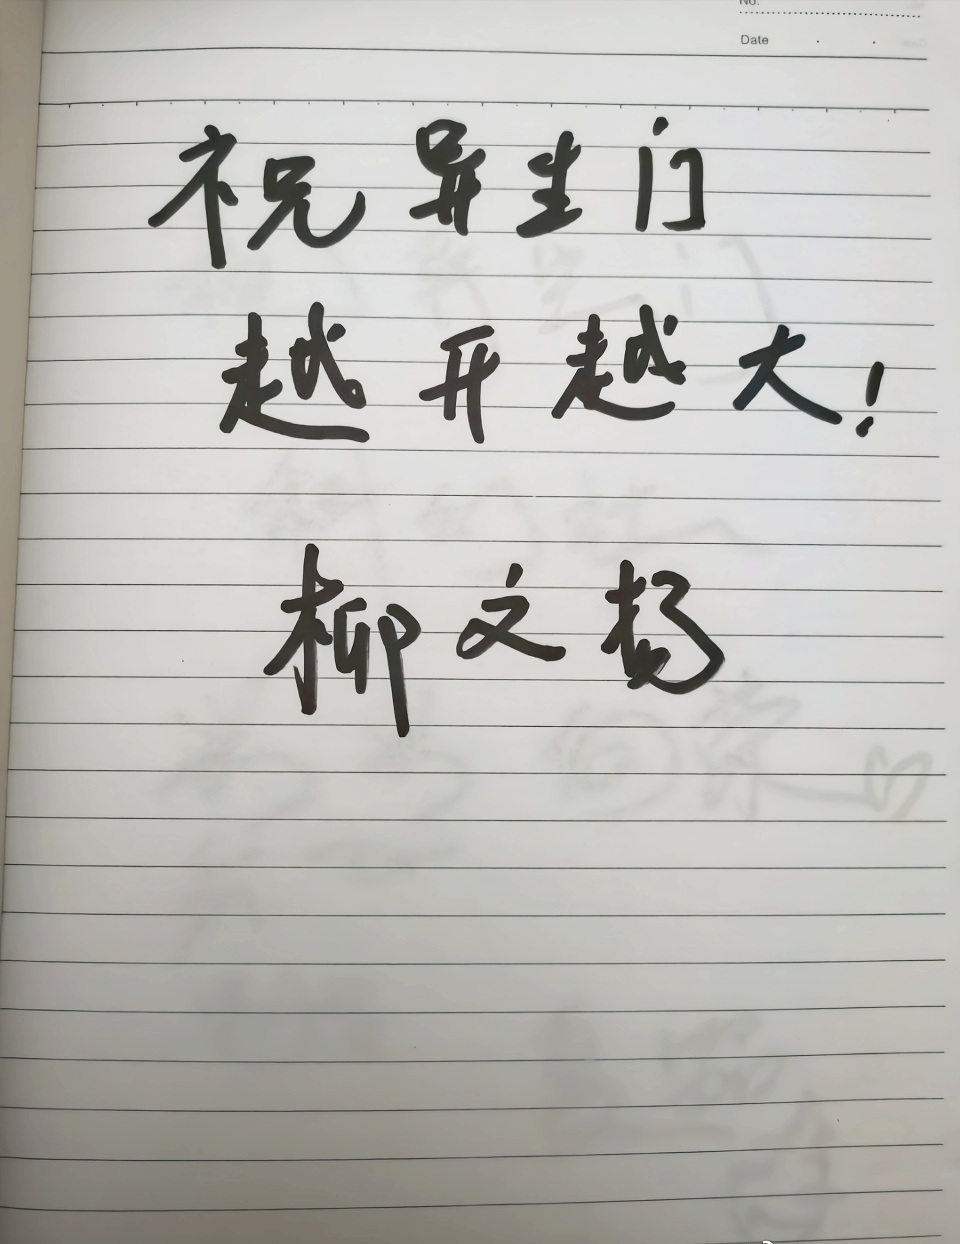 No.
Date
祝异生门
越开越大!
柳文扬